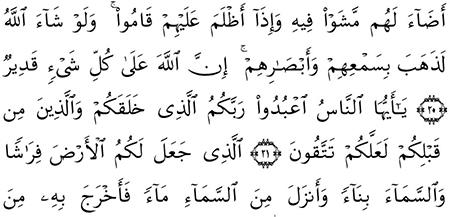 أَضَآءَ لَهُم مَّشَوْا۟ فِيهِ وَإِذَآ أَظْلَمَ عَلَيْهِمْ قَامُوا۟ ۚ وَلَوْ شَآءَ ٱللَّهُ
لَذَهَبَ بِسَمْعِهِمْ وَأَبْصَـٰرِهِمْ ۚ إِنَّ ٱللَّهَ عَلَىٰ كُلِّ شَىْءٍ قَدِيرٌ
۝٢٠ يَـٰٓأَيُّهَا ٱلنَّاسُ ٱعْبُدُوا۟ رَبَّكُمُ ٱلَّذِى خَلَقَكُمْ وَٱلَّذِينَ مِن
قَبْلِكُمْ لَعَلَّكُمْ تَتَّقُونَ ۝٢١ ٱلَّذِى جَعَلَ لَكُمُ ٱلْأَرْضَ فِرَٰشًا
وَٱلسَّمَآءَ بِنَآءً وَأَنزَلَ مِنَ ٱلسَّمَآءِ مَآءً فَأَخْرَجَ بِهِۦ مِنَ